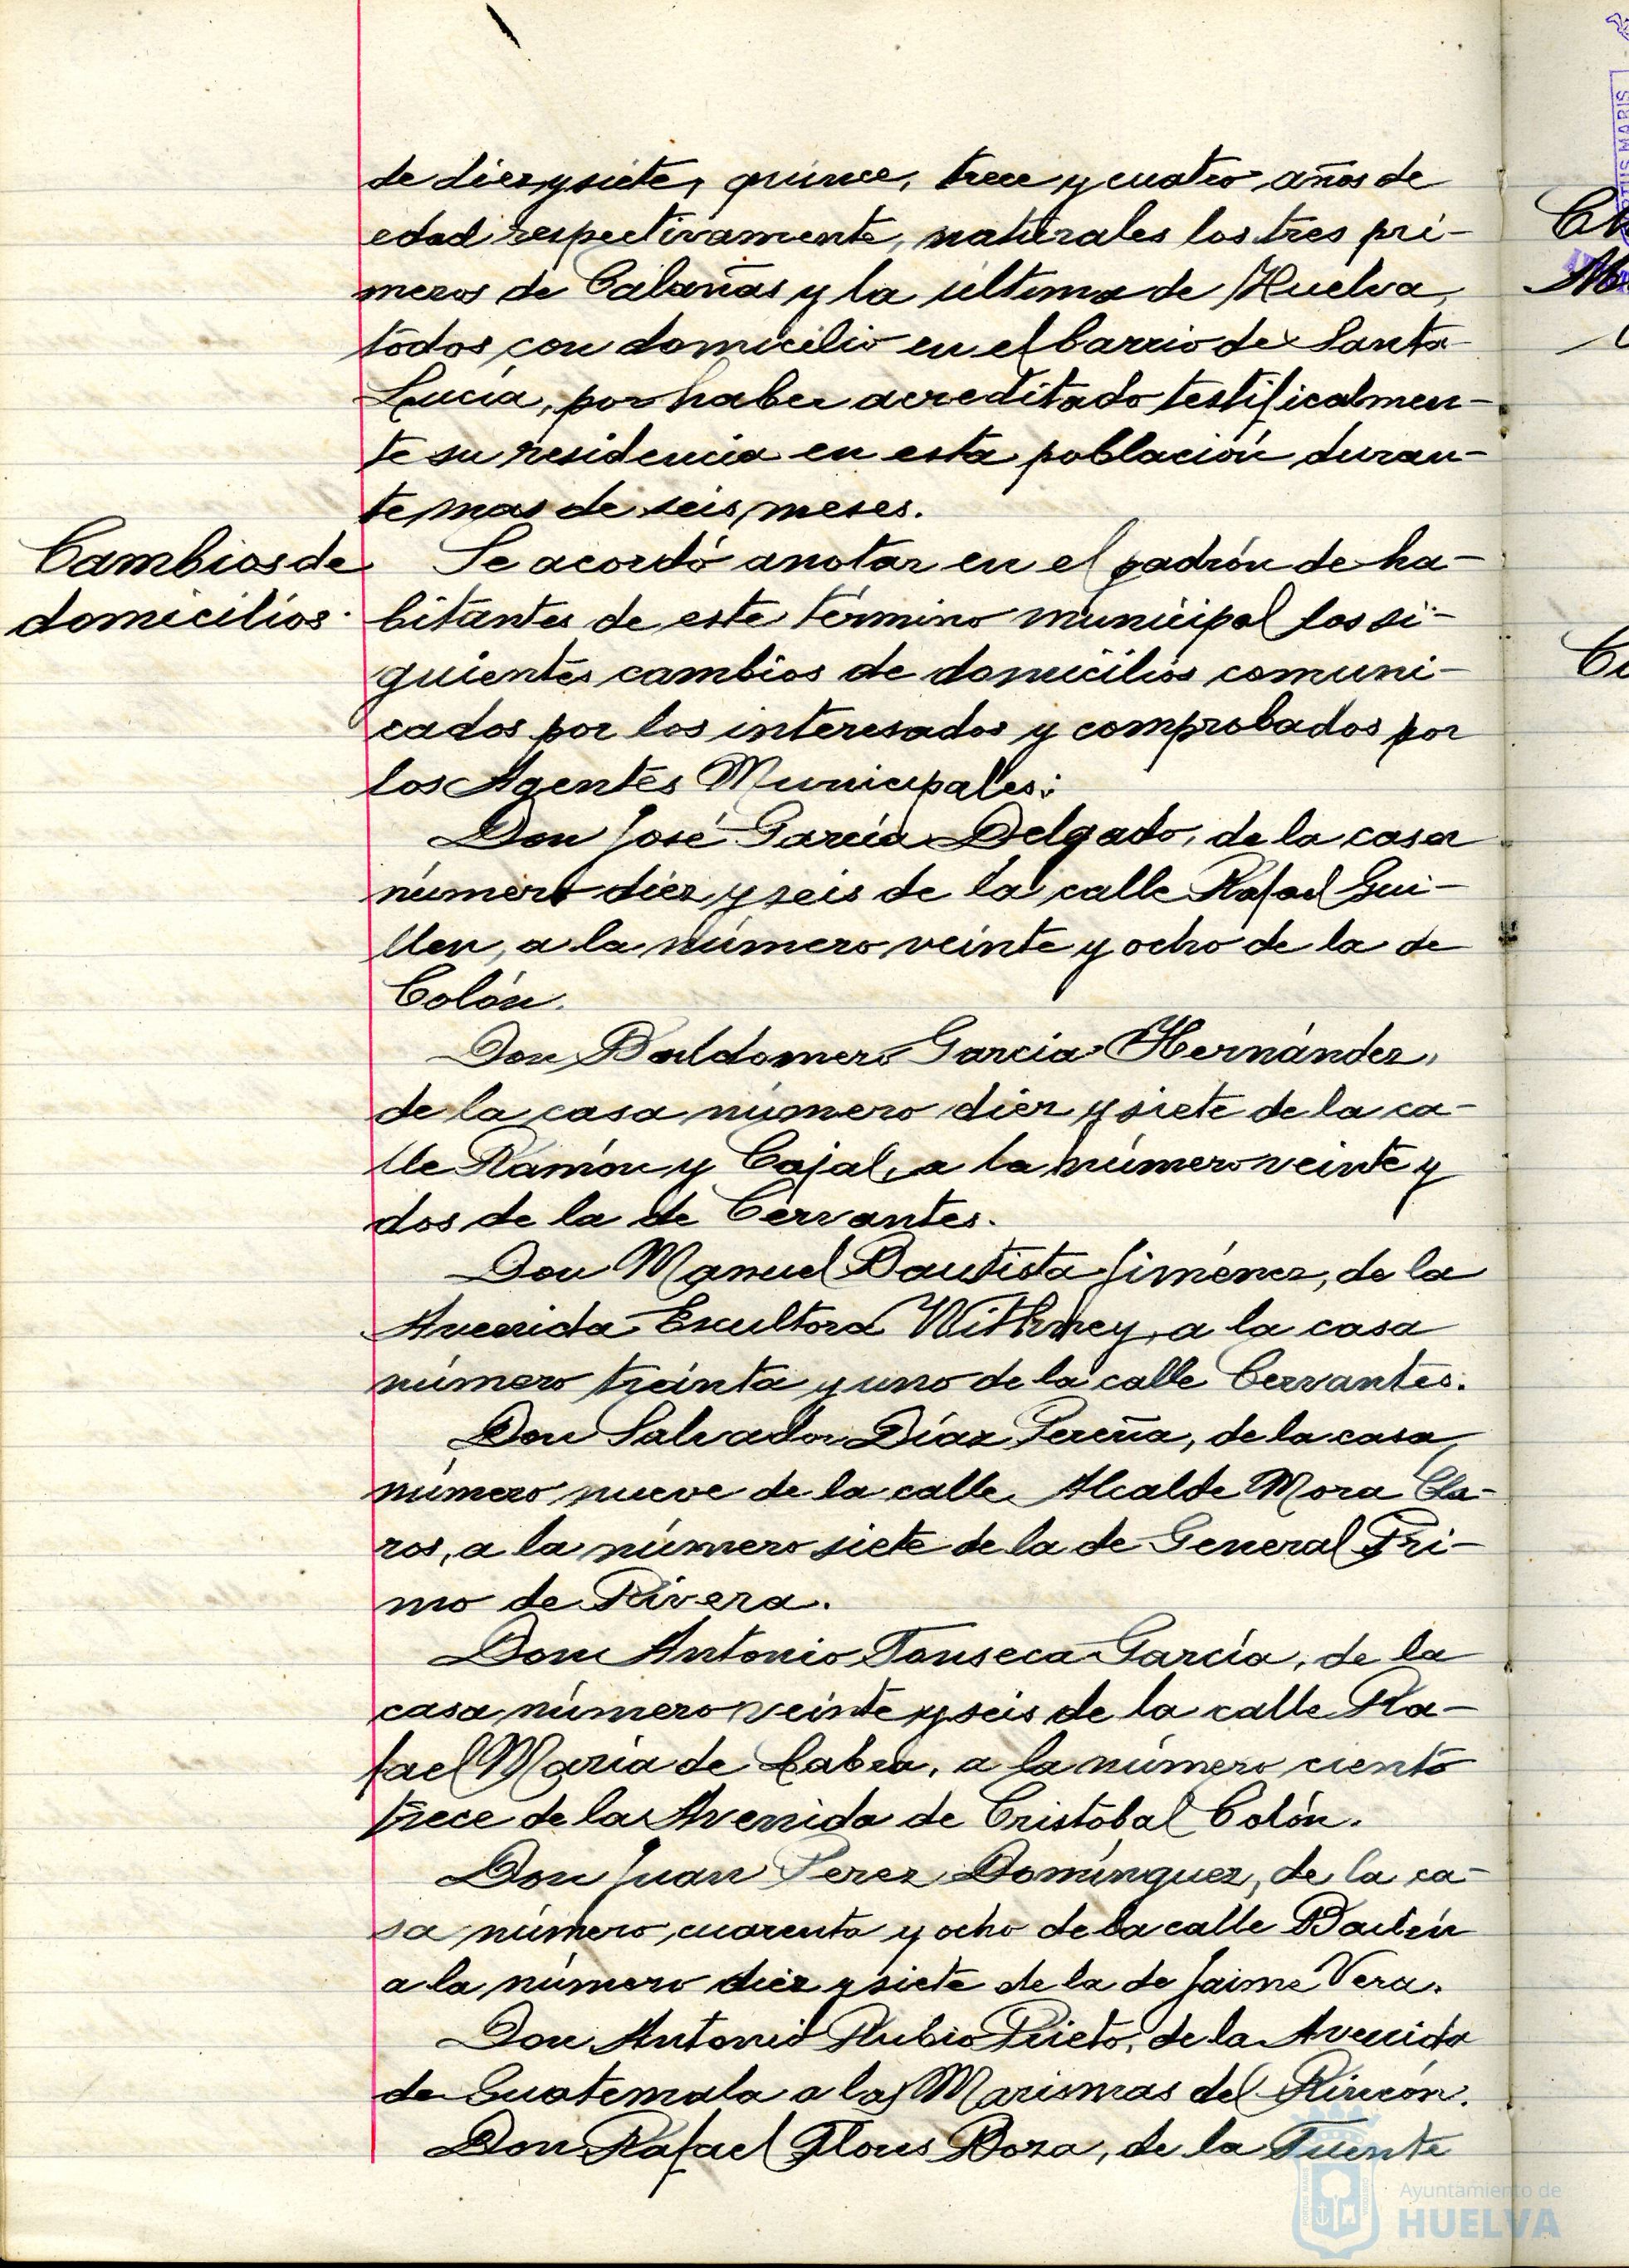 de diez y siete, quince, trece y cuatro años de
edad respectivamente, naturales los tres pri-
meros de Calañas y la última de Huelva,
todos con domicilio en el barrio de Santa
Lucía, por haber acreditado testificalmen-
te su residencia en esta población duran-
te mas de seis meses.
Cambios de
domicilios.
Se acordó anotar en el padrón de ha-
bitantes de este término municipal los si-
guientes cambios de domicilios comuni-
cados por los interesados y comprobados por
los Agentes Municipales:
Don José García Delgado, de la casa
número diez y seis de la calle Rafael Gui-
llen, a la número veinte y ocho de la de
Colón.
Don Baldomero Garcia Hernández,
de la casa número diez y siete de la ca-
lle Ramón y Cajal, a la número veinte y
dos de la de Cervantes.
Don Manuel Bautista Jiménez, de la
Avenida Escultora Withney, a la casa
número treinta y uno de la calle Cervantes.
Don Salvador Díaz Pereña, de la casa
número nueve de la calle Alcalde Mora Cla-
ros, a la número siete de la de General Pri-
mo de Rivera.
Don Antonio Fonseca García, de la
casa número veinte y seis de la calle Ra-
fael María de Labra, a la número ciento
trece de la Avenida de Cristóbal Colón.
Don Juan Perez Domínguez, de la ca-
sa número cuarenta y ocho de la calle Bailén
a la número diez y siete de la de Jaime Vera.
Don Antonio Rubio Prieto, de la Avenida
de Guatemala a las Marismas del Rincón.
Don Rafael Flores Boza, de la Fuente
Ayuntamiento de
HUELVA